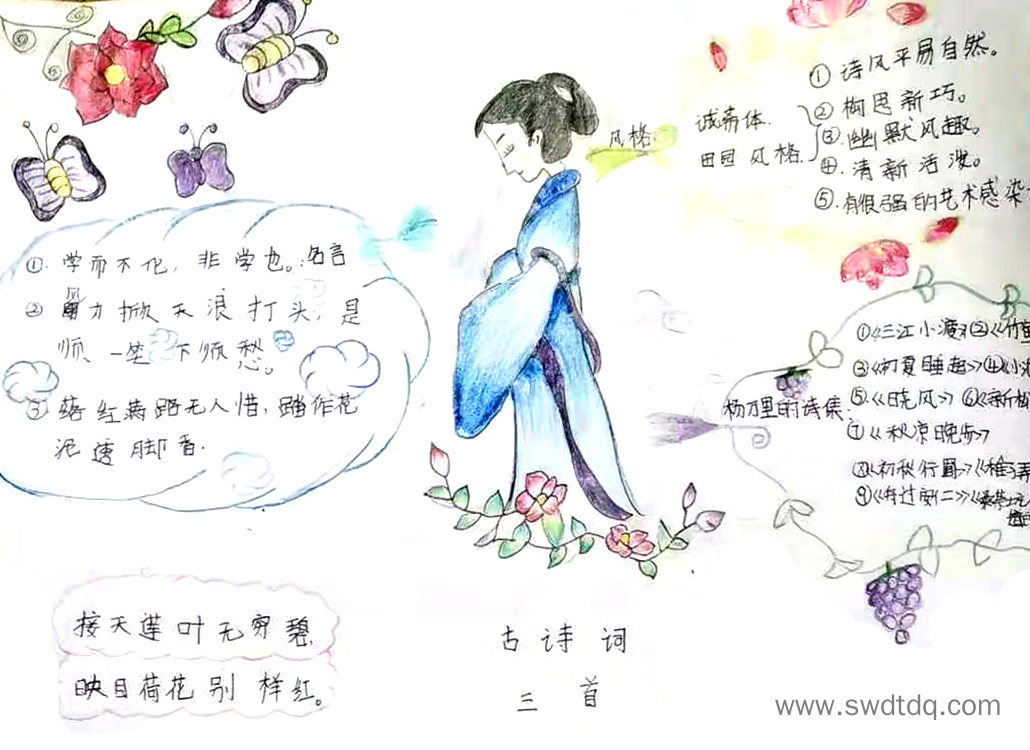 ①. 学而不化, 非学也。:名言
② 风力掀天浪打头, 是
须一笑
愁。
③ 落红满路无人惜, 踏作花
泥透脚香.
风格
诚斋体.
田园风格.
① 诗风平易自然。
② 构思新巧。
③.幽默风趣。
④. 清新活泼。
⑤.有很强的艺术感染
杨万里的诗集:
①《三江小渡》②《竹
③《初夏睡起》④《小
⑤《晓风》⑥《新柳
⑦《秋凉晚步》
⑧《初秋行圃》
接天莲叶无穷碧,
映日荷花别样红。
古诗词
三首
www.swdtdq.com